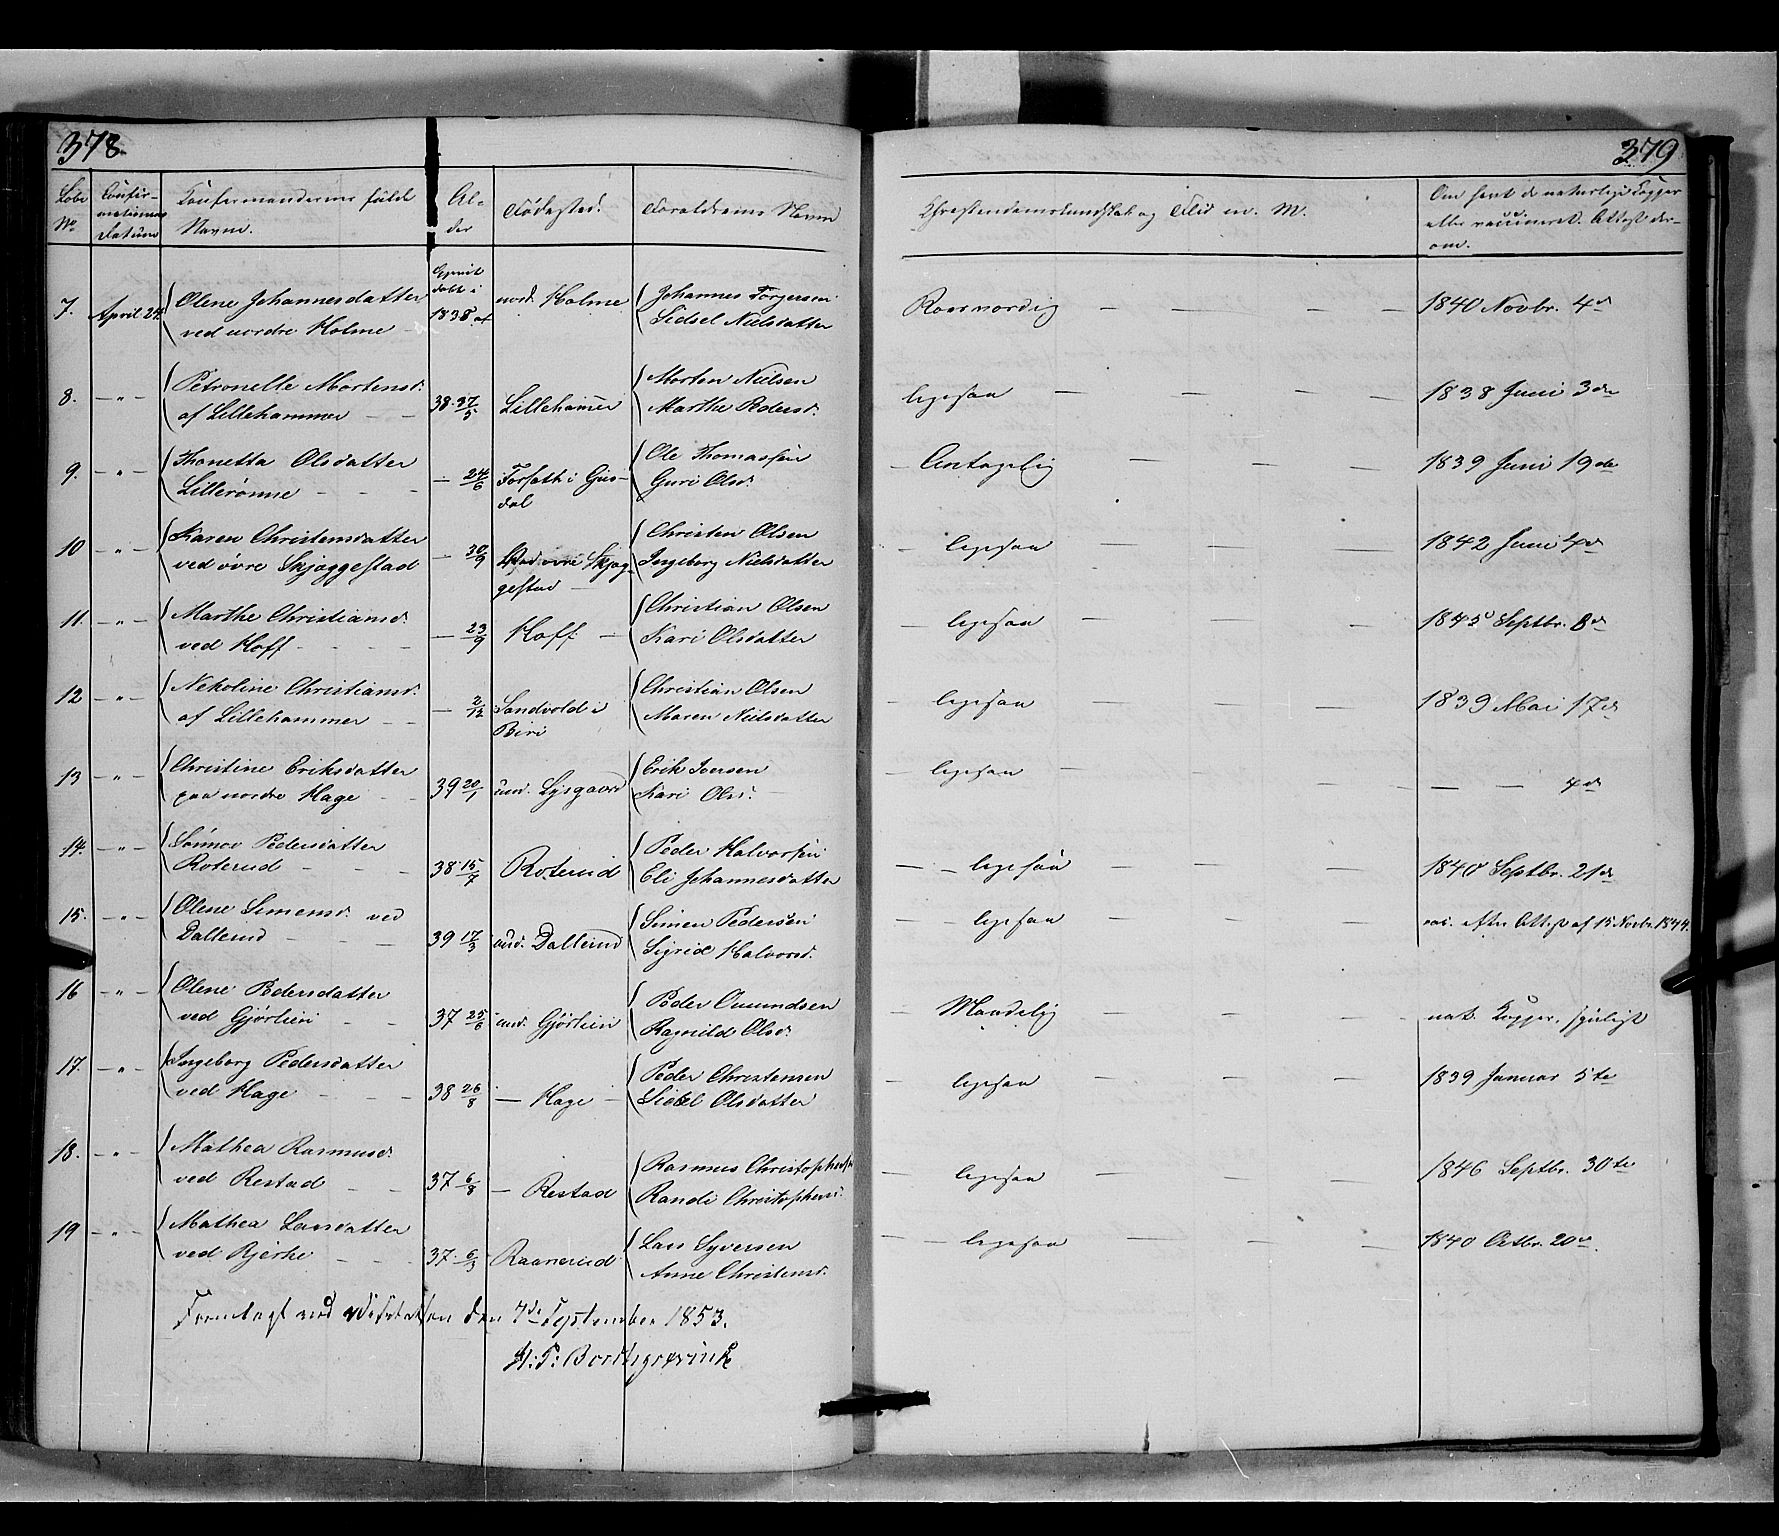 378
379
Løbe No Confirmationens Datum Confirmandernes fulde Navn. Alder Fødested. Forældrenes Navne Christendomskundskab og Flid m. M. Om havt de naturlige Kopper eller vaccineret. Attest derom.
7. April 24. Olene Johannesdatter døbt i 1838 af nord. Holme Johannes Torgersen 1840 Novbr. 4de
ved nordre Holme Sidsel Nielsdatter
8. — " — Petronelle Mortensd. 38. 27/5 Lillehamer Morten Nielsen ligesaa — — — 1838 Juni 3die
af Lillehammer — — Marthe Pedersd.
9. — " — Thonetta Olsdatter — 24/6 Forsæth i Gus- Ole Thomassen — Antagelig — — — 1839 Juni 19de
Lillerønne - - - dal Guri Olsd.
10 — " — Karen Christensdatter — 30/9 øvre Skjæg- Christen Olsen — ligesaa — — — 1842 Juni 4de
ved øvre Skjæggestad gestad — Ingeborg Nielsdatter
11. — " — Marthe Christiansd. — 23/9 Hoff — Christian Olsen — ligesaa — — — 1845 Septbr. 8de
ved Hoff - - - Kari Olsdatter
12 — " — Nekoline Christiansd. — 2/12 Sandvold i Christian Olsen — ligesaa — — — 1839 Mai 17de
af Lillehammer — — Biri Maren Nielsdatter
13 — " — Christine Eriksdatter 39 20/1 und. Lysgaard Erik Iversen — ligesaa — — — — — 4de
paa nordre Hage - - Kari Olsd. —
14. — " — Sønnov Pedersdatter 38. 15/7 Roterud Peder Halvorsen — — ligesaa — — — 1840 Septbr. 21de
Roterud - - - Eli Johannesdatter
15. — " — Olene Simensd. ved 39 17/3 und. Dallerud Simen Pedersen — — ligesaa — — — vac. efter Attest af 15 Novbr. 1844.
Dallerud - - - Sigrid Halvorsd.
16 — " — Olene Pedersdatter 37 25/6 und. Gjørlien Peder Amundsen — Maadelig — — — nat. Kopper,
ved Gjørlien - - Ragnild Olsd.
17. — " — Ingeborg Pedersdatter 38 26/8 — Hage — Peder Christensen — ligesaa — — — 1839 Januar 5te
ved Hage - - - Sidsel Olsdatter
18. — " — Mathea Rasmusd. 37 6/8 — Restad Rasmus Christophersen — ligesaa — 1846 Septbr. 30te
ved Restad - - Randi Christophersd.
19 — " — Mathea Larsdatter 37. 6/3 Raanerud Lars Syversen — — ligesaa — — — 1840 Octbr. 20de
ved Bjerke - - - Anne Christensd.
Fremlagt ved Visitatsen den 7de September 1853.